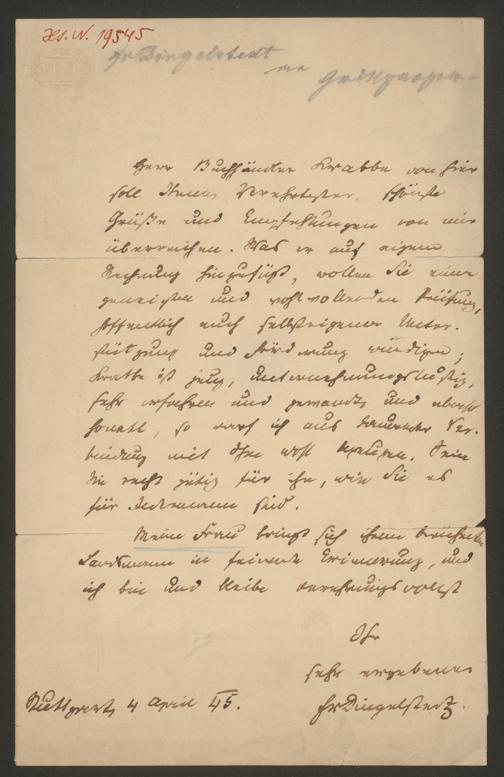 Hs. N. 19545
Fr Dingelstedt
an
Grillparzer
Herr Buchhändler Krabbe von hier
soll Ihnen, Verehrtester, schönste
Grüße und Empfehlungen von mir
überreichen. Was er auf eigene
Rechnung hinzufügt, wollen Sie einer
geneigten und wohlwollenden Prüfung,
hoffentlich auch selbsteigener Unter-
stützung und Förderung würdigen;
Krabbe ist jung, unternehmungslustig,
sehr erfahren und gewandt und ebenso
honett, so darf ich aus dauernder Ver-
bindung mit Ihm wohl bezeugen. Seien
Sie recht gütig für ihn, wie Sie es
für Jedermann sind.
Meine Frau bringt sich ihrem berühmten
Landsmann in Erinnerung, und
ich bin und bleibe verehrungsvollst
Ihr
sehr ergebener
FrDingelstedt.
Stuttgart, 4 April 45.